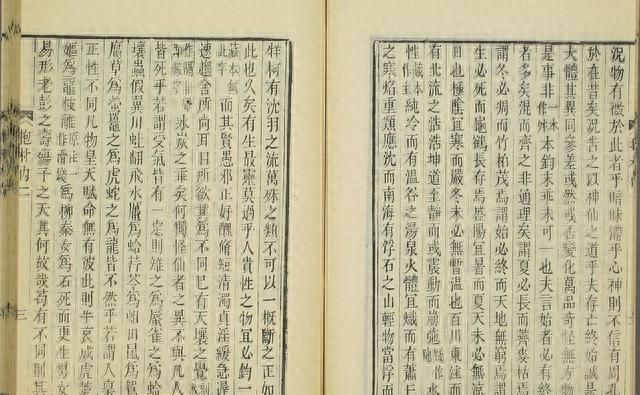 況物有微於此者乎暗昧滯乎心神則不信有周孔
於在昔矣況告之以神仙之道乎夫存亡終始誠是
大體其異同參差或然或否變化萬品奇怪無方
是事非一本作殊本鈞末乖未可一也夫言始者必有終
者多矣混而齊之非通理矣謂夏必長而薺麥枯焉
謂冬必凋而竹柏茂焉謂始必終而天地無窮焉謂
生必死而龜鶴長存焉盛陽宜暑而夏天未必無涼
也極陰宜寒而嚴冬未必無暫溫也百川東注而
有北流之浩浩坤道至靜而或震動而崩弛
性純冷而有溫谷之湯泉火體宜熾而有蕭
之寒焰重類應沈而南海有浮石之山輕物當浮
牂柯有沈羽之流萬殊之類不可以一概斷之正如
此也久矣有生最靈莫過乎人貴性之物宜必鈞一
藏本無此字而其賢愚邪正好醜脩短清濁貞淫緩急遲
速趨舍所尚耳目所欲其爲不同已有天壤之覺
冰炭之乖矣何獨怪仙者之異不與凡人
皆死乎若謂受氣皆有一定則雉之爲蜃雀之爲蛤
壤蟲假翼川蛙翻飛水蠣爲蛤荇苓爲蛆田鼠爲鴽
腐草爲螢鼉之爲虎蛇之爲龍皆不然乎若謂人稟
正性不同凡物皇天賦命無有彼此則牛哀成虎楚
嫗爲黿枝離原注一作滑錢爲柳秦女爲石死而更生男
易形老彭之壽殤子之夭其何故哉苟有不同則其
抱朴內二
三